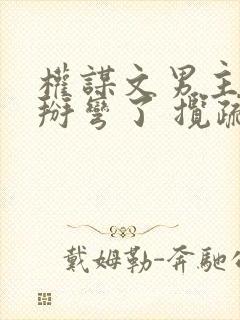 權謀文男主
掰彎了攬疏
戴姆勒-奔馳公